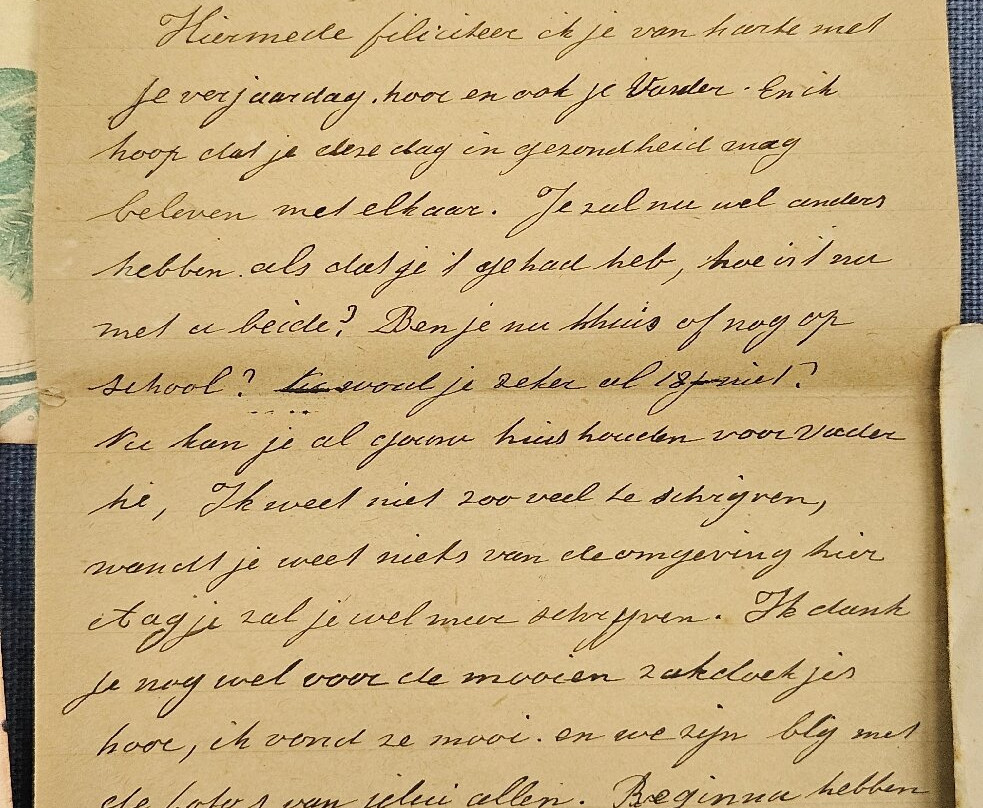 Hiermede filiciteer ik je van harte met
je verjaardag, hoor en ook je Vader. En ik
hoop dat je deze dag in gezondheid mag
beleven met elkaar. Je zal nu wel anders
hebben als dat je 't gehad heb, hoe is 't nu
met u beide? Ben je nu thuis of nog op
school? word je zeker al 18 niet?
Nu kan je al gouw huishouden voor Vader
hé, Ik weet niet zoo veel te schrijven,
wandt je weet niets van de omgeving hier
Aagje zal je wel meer schrijven. Ik dank
je nog wel voor de mooien zakdoekjes
hoor, ik vond ze mooi. en we zijn blij met
de foto's van jelui allen. Beginnu hebben